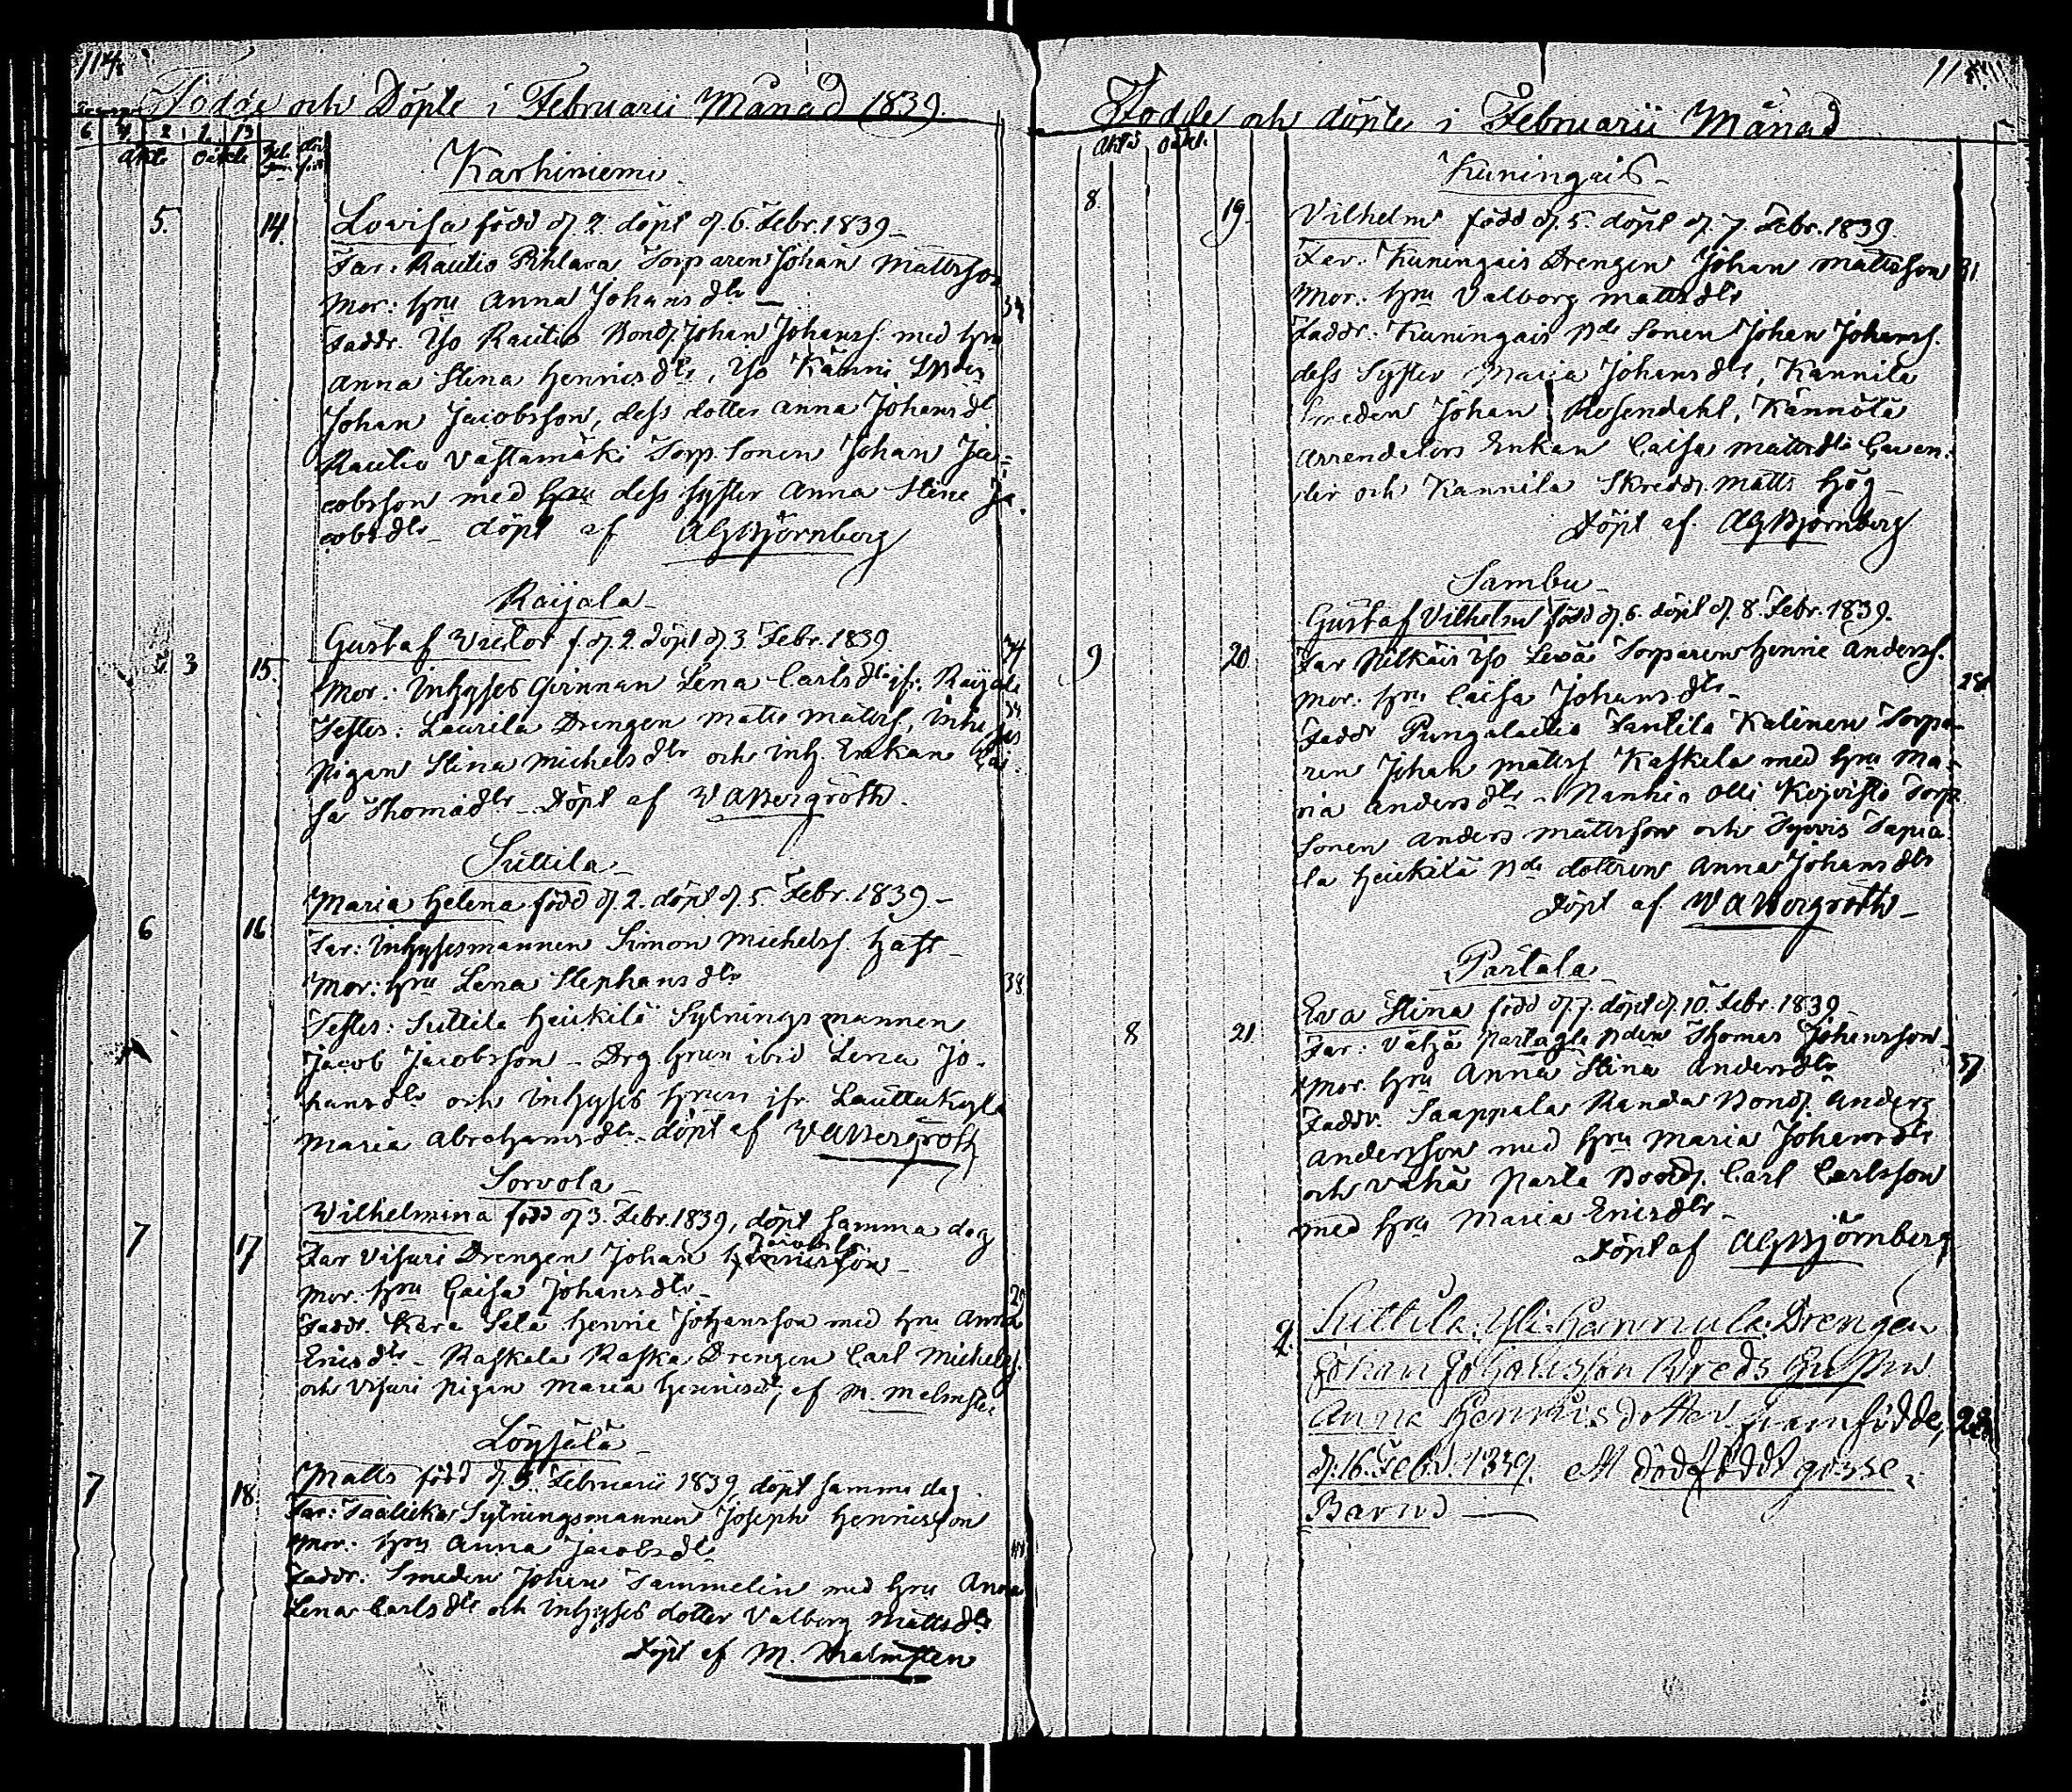 114
Födde och Döpte i Februarii Månad 1839.
6 4 2 1 13
Äkte Oäkte
Karhiniemi
5. 14. Lovisa född d. 2 döpt d. 6. Febr. 1839
Far: Rautio Pihlava Torparen Johan Mattsson
Mor: hru Anna Johans dtr 34
Faddr. Iso Rautio Bond. Johan Johanss. med hru
Anna Stina Henrics dtr, Iso Känni
Johan Jacobsson, dess dotter Anna Johans dt
Rautio Vastamäki Torp. Sonen Johan Ja=
cobsson med hru dess syster Anna Stina Ja
cobs dtr döpt af AGBjörnberg
Raijala
Gustaf Victor f. d. 2. döpt d. 3. Febr. 1839 34
3 15. Mor: Inhyses Qvinnan Lena Carls dtr ifr. Raijala
Testes: Laurila Drengen Matts Mattss. Inhyses
Pigan Stina Michels dtr och Inh. Enkan Cai
sa Thomä dtr Döpt af WABergroth.
Suttila
Maria Helena född d. 2. döpt d. 5. Febr. 1839
6 16 Far: Inhysesmannen Simon Michelss. Haft
Mor: hru Lena Stephans dtr 38
Testes: Suttila Heikilä Sytningsmannen
Jacob Jacobsson Drg hrun ibid Lena Jo-
hans dtr och Inhyses hrun ifr Lauttakylä
Maria Abrahams dtr döpt af WABergroth
Sorvola
Wilhelmina född d. 3. Febr. 1839, döpt samma dag
7 17 Far Visuri Drengen Johan Henricsson
Mor. hru Caisa Johans dtr 29
Faddr. Kara Sala Henric Johansson med hru Anna
Erics dtr Raskala Raska Drengen Carl Michelss.
och Visuri Pigan Maria Henricsdt, af M. Malmsten
Löysälä
Matts född d. 3. Februarii 1839 döpt samma dag.
7 18. Far: Taalicka Sytningsmannen Joseph Henricsson
Mor: hru Anna Jacobs dtr
Faddr: Smeden Johan Sammelin med hru Anna
Lena Carls dtr och Inhyses dotter Valborg Matts dtr
Döpt af M. Malmsten
Födde och döpte i Februarii Månad
Äkta Oäkt.
Kuningais
8 19. Vilhelm född d. 5. döpt d. 7. Febr. 1839.
Far: Kuningais Drengen Johan Mattsson 31
Mor: hru Valborg Matts dtr
Faddr: Kuningais Bde Sonen Johan Johanss.
dess Syster Maria Johans dtr, Kannila
Smeden Johan Rosendahl, Kännölä
Arrendators Enkan Caisa Matts dtr
och Kannila Skredd. Matts Hög
Döpt af. AGBjörnberg
Sambu
Gustaf Vilhelm född d. 6. döpt d. 8. Febr. 1839.
9 20 Far Pilkäis Iso Levä Torparen Henric Anderss.
Mor. hru Caisa Johans dtr 28
Faddr Pungalaitio Fantila Kalinen Torpa-
ren Johan Mattss Kaskela med hru Ma-
ria Anders dtr Nanhia Olli Kojvisto Torp.
Sonen Anders Mattsson och Sypvis Tapia
la Heikilä Bde dottren Anna Johans dtr
Döpt af WABergroth
Partala
Eva Stina född d. 7. döpt d. 10. Febr. 1839
8 21 Far: Vähä Partala Bden Thomas Johansson
Mor. hru Anna Stina Anders dtr 37
Faddr. Saappala Randa Bond. Anders
Andersson med hru Maria Johans dtr
och Vähä Parta Bond. Carl Carlsson
med hru Maria Erics dtr
Döpt af AGBjörnberg
2. Suttila, Yli Hannula Drengen
Johan Johansson Breds hustru
Anna Henricsdotter framfödde, 28
d. 16. Febr. 1839. ett dödfödt gosse-
Barn